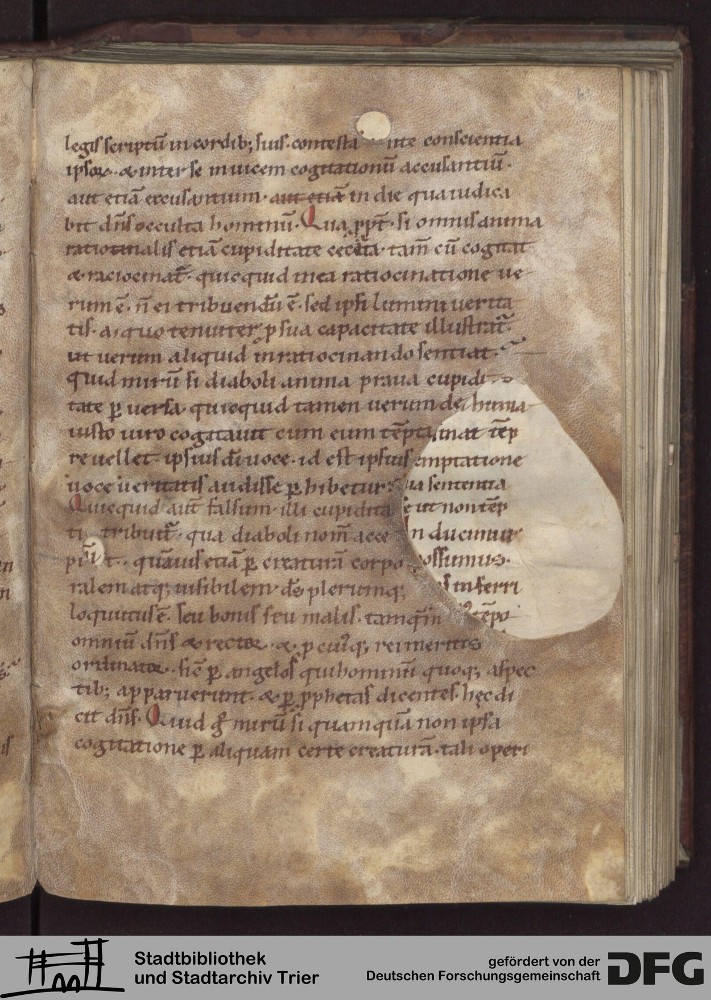 legis scriptū in cordib; suis. contesta nte conscientia
ipsoꝝ. & inter se inuicem cogitationū accusantiū.
aut etiā excusantium. aut etiā in die qua iudica
bit dn̄s occulta hominū. Qua ppt̄. si omnis anima
rationalis etiā cupiditate cecata. tam̄ cū cogitat
& raciocinat̄. quicquid in ea ratiocinatione ue
rum ē. n̄ ei tribuendū ē. sed ipsi lumini uerita
tis. a quo tenuiter ꝓ sua capacitate illustrat̄.
ut uerum aliquid in ratiocinando sentiat.
Quid mirū si diaboli anima praua cupidi
tate ꝑuersa. quicquid tamen uerum de
iusto uiro cogitauit cum eum tēpta
re uellet. ipsius dī uoce. id est ipsius
uoce ueritatis audisse ꝑhibetur.
Quicquid aut̄ falsum. illi cupidita
ti tribuit̄. qua diaboli nom̄ acce
pit. quāuis etiā ꝑ creaturā corpo
ralem atq; uisibilem ds̄ plerumq;
loquutus ē. seu bonis seu malis. tamq̄m
omniū dn̄s & rector. & ꝓ cuiꝯq; rei meritis
ordinator. sic̄ ꝑ angelos qui hominū quoq; aspec
tib; apparuerunt. & ꝑ ꝓphetas dicentes. hęc di
cit dn̄s. Quid ḡ mirū si quamquā non ipsa
cogitatione ꝑ aliquam certe creaturā. tali operi
huma
nat tēp
emptatione
sententia
ut non tēp
n ducimur
possumus.
inferri
tēpo
Stadtbibliothek
und Stadtarchiv Trier
gefördert von der
Deutschen Forschungsgemeinschaft
DFG